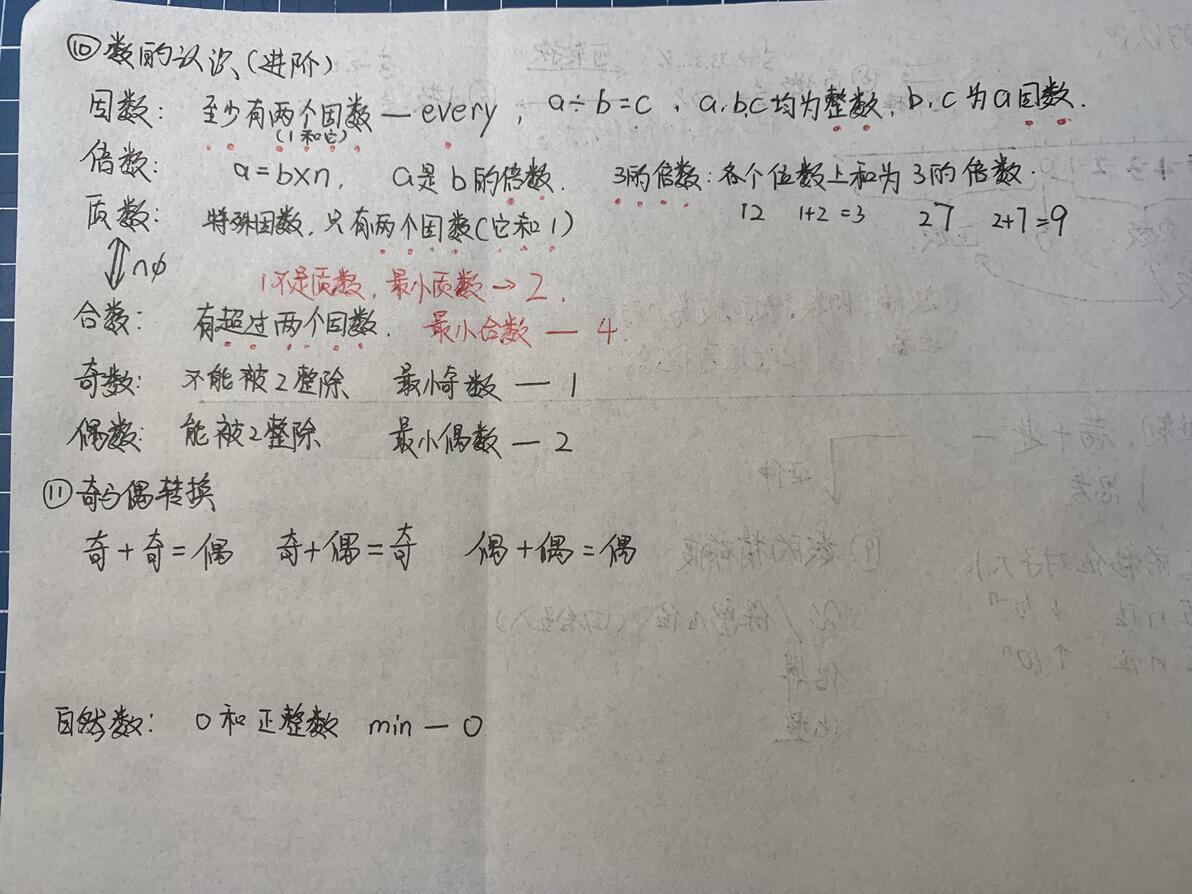 ⑩数的认识(进阶)
因数: 至少有两个因数 — every, a÷b=c, a,b,c均为整数, b,c为a因数.
(1和它)
倍数: a=b×n, a是b的倍数. 3的倍数:各个位数上和为3的倍数.
12 1+2=3 27 2+7=9
质数: 特殊因数,只有两个因数(它和1)
∩∅
1不是质数,最小质数→2.
合数: 有超过两个因数. 最小合数 — 4.
奇数: 不能被2整除 最小奇数 — 1
偶数: 能被2整除 最小偶数 — 2
⑪奇与偶转换
奇+奇=偶 奇+偶=奇 偶+偶=偶
自然数: 0和正整数 min — 0